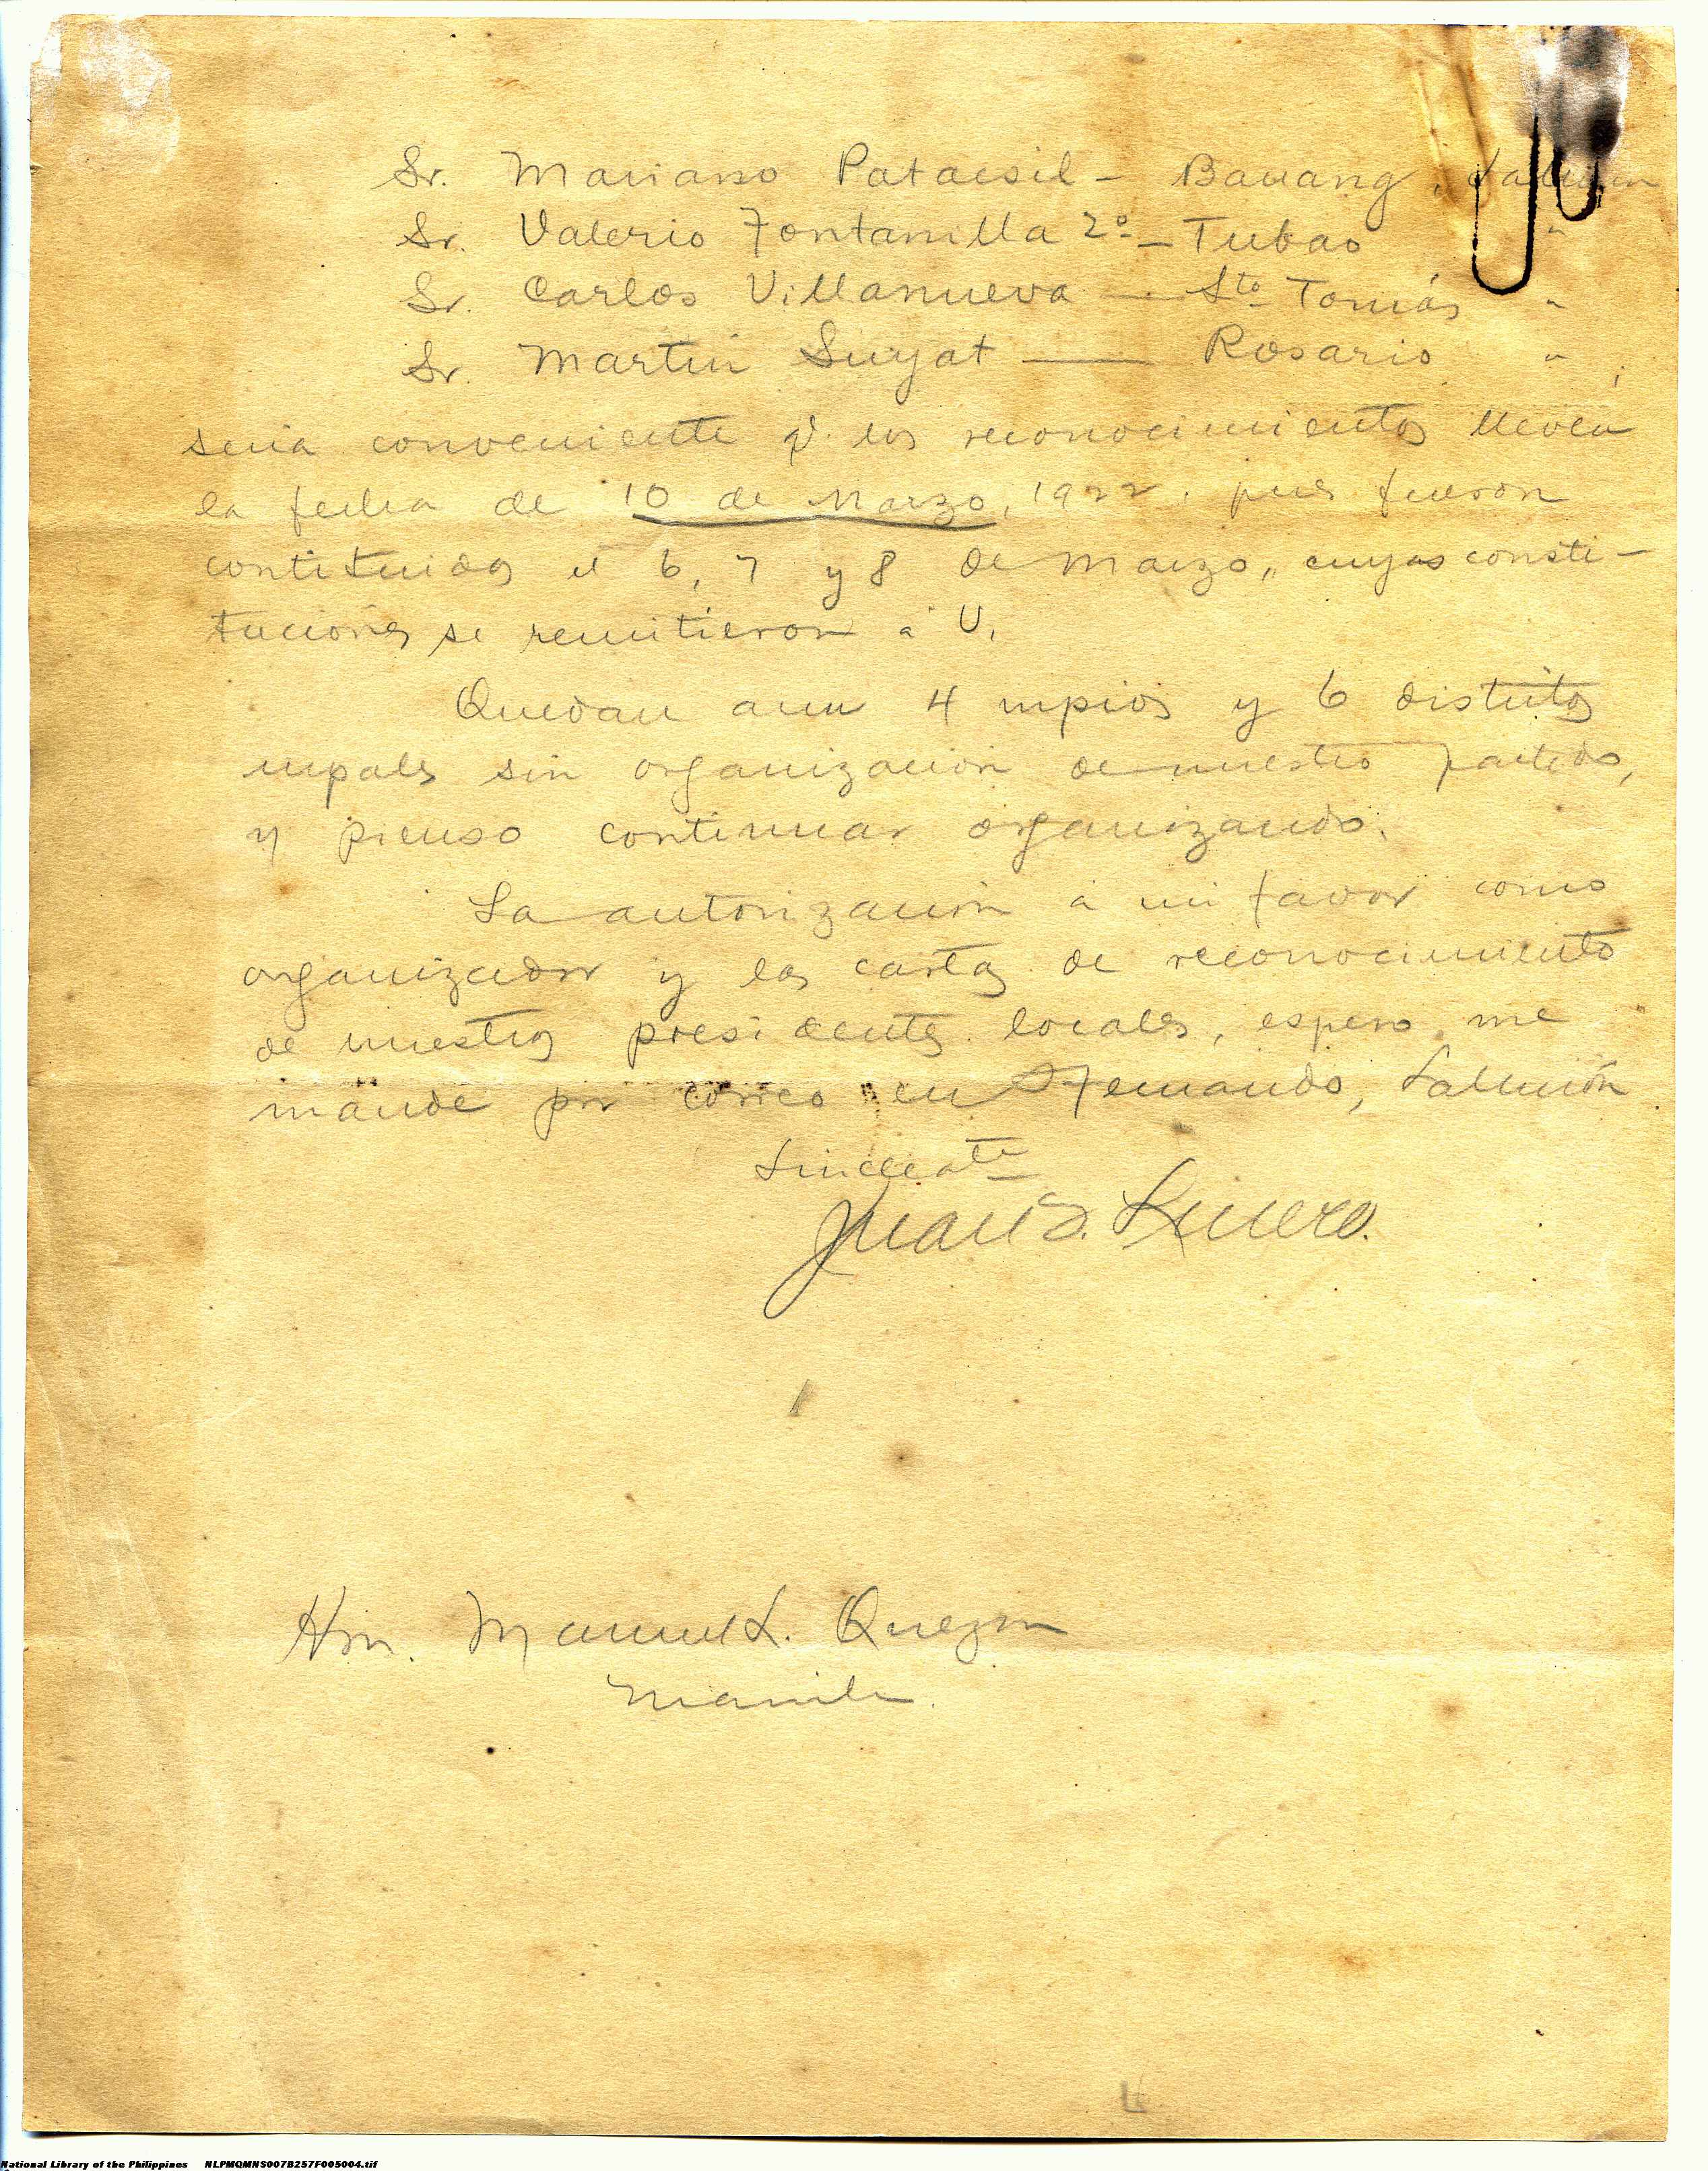 Sr. Mariano Patacsil - Bauang, La Union
Sr. Valerio Fontanilla 2º - Tubao "
Sr. Carlos Villanueva - Sto Tomás "
Sr. Martin Suyat - Rosario " ,
seria conveniente q. los reconocimientos lleven
la fecha de 10 de Marzo, 1922, pues fueron
contituidos el 6, 7 y 8 de Marzo, cuyas consti-
tuciones se remitieron á U.
Quedan aun 4 mpios y 6 distritos
mpales sin organización de nuestro partido,
y pienso continuar organizando.
La autorización á mi favor como
organizador y las cartas de reconocimiento
de nuestros presidentes locales, espero me
mande por correo en S Fernando, La Unión
Sincerate
Juan
Hon. Manuel L. Quezon
Manila.
National Library of the Philippines NLPMQMNS007B257F005004.tif